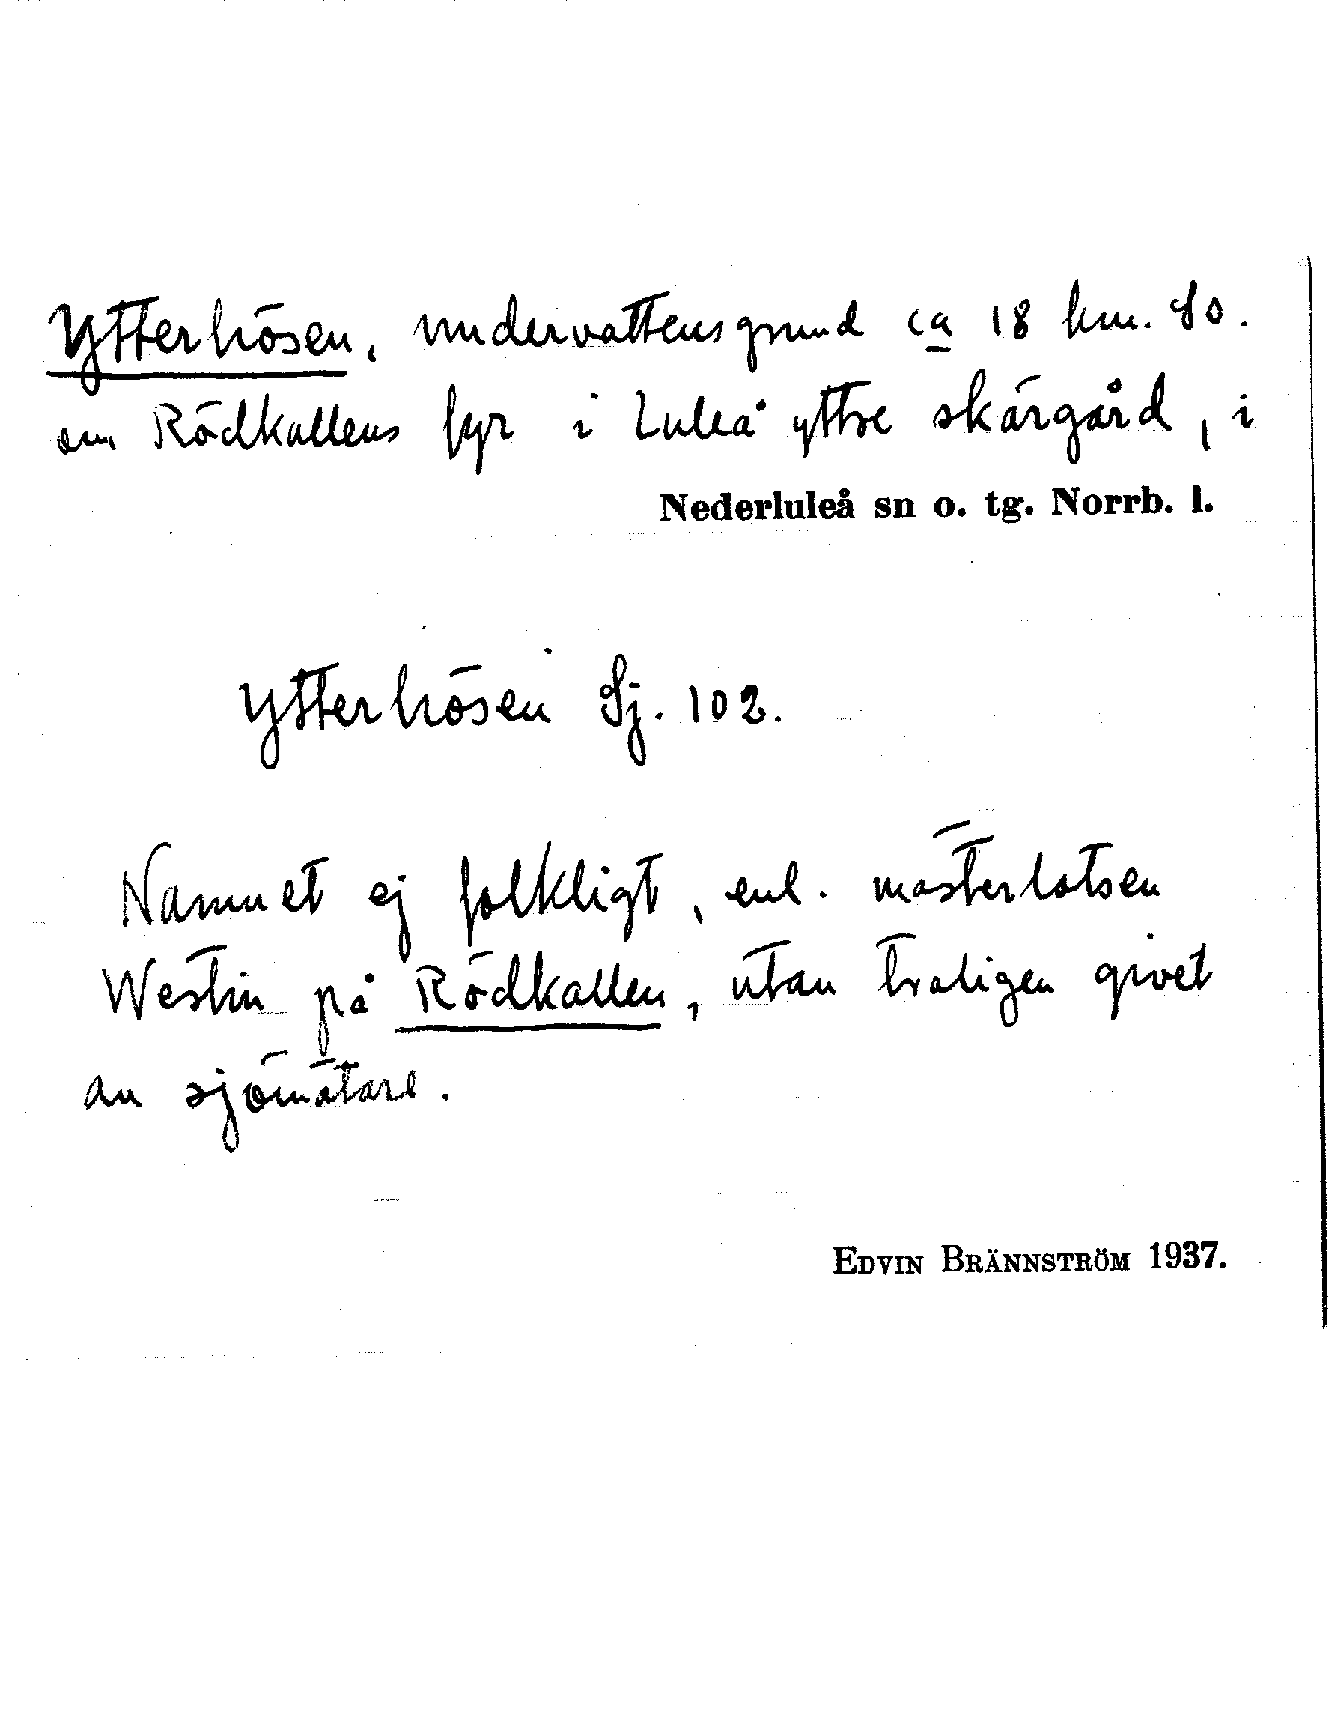 Ytterhösen, undervattensgrund ca 18 km. So.
om Rödkallens fyr i Luleå yttre skärgård, i
Nederluleå sn o. tg. Norrb. l.
Ytterhösen Sj. 102.
Namnet ej folkligt, enl. mästerlotsen
Westin på Rödkallen, utan troligen givet
av sjömätare.
Edvin Brännström 1937.